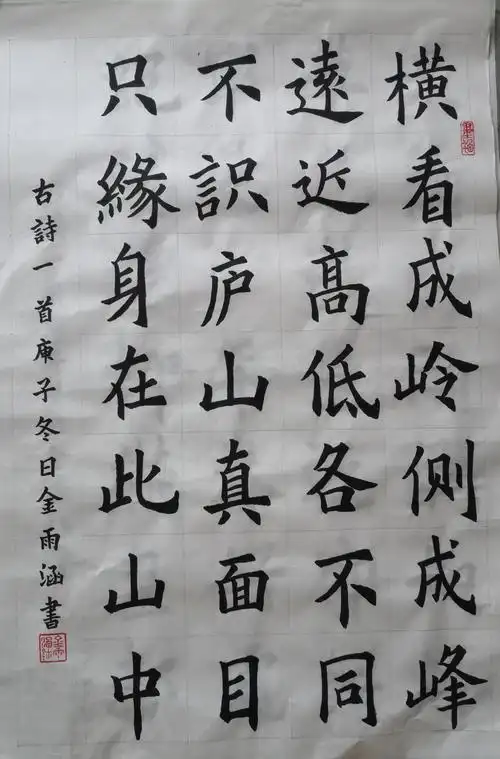 橫看成岭侧成峰
遠近高低各不同
不識庐山真面目
只緣身在此山中
古詩一首庚子冬日金雨涵書